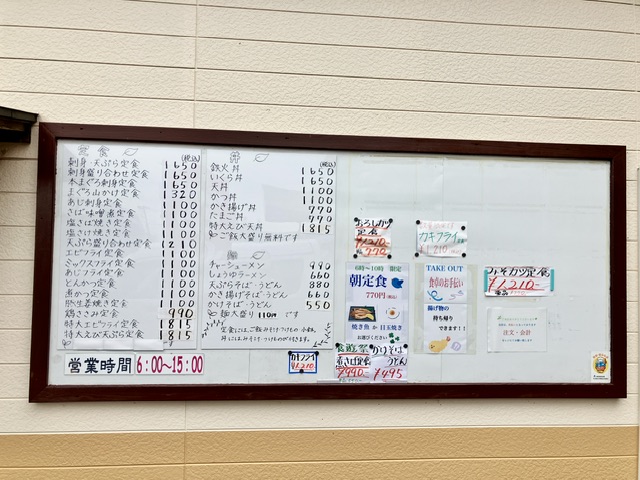 定食 (税込)
刺身・天ぷら定食 1650
刺身盛り合わせ定食 1650
本まぐろ刺身定食 1650
まぐろ山かけ定食 1320
あじ刺身定食 1100
さば味噌煮定食 1100
塩さば焼き定食 1100
塩さけ焼き定食 1100
天ぷら盛り合わせ定食 1210
エビフライ定食 1100
ミックスフライ定食 1100
あじフライ定食 1100
とんかつ定食 1100
煮かつ定食 1100
豚生姜焼き定食 1100
鶏ささみ定食 990
特大エビフライ定食 1815
特大えび天ぷら定食 1815
営業時間 6:00〜15:00
丼 (税込)
鉄火丼 1650
いくら丼 1650
天丼 1100
かつ丼 1100
かき揚げ丼 770
たまご丼 770
特大えび天丼 1815
ご飯大盛り無料です
麺
チャーシューメン 990
しょうゆラーメン 660
天ぷらそば・うどん 880
かき揚げそば・うどん 660
かけそば・うどん 550
麺大盛り110円です
カキフライ
¥1,210-
おろしかつ
定食
¥1,210-
カキフライ定食
¥1,210-
6時〜10時 限定
朝定食
770円(税込)
焼き魚 か 目玉焼き
お選びください
かけそば
うどん
¥990-
¥495
TAKE OUT
食卓のお手伝い
揚げ物の
持ち帰り
できます!!
みそカツ定食
¥1,210-
注文・会計